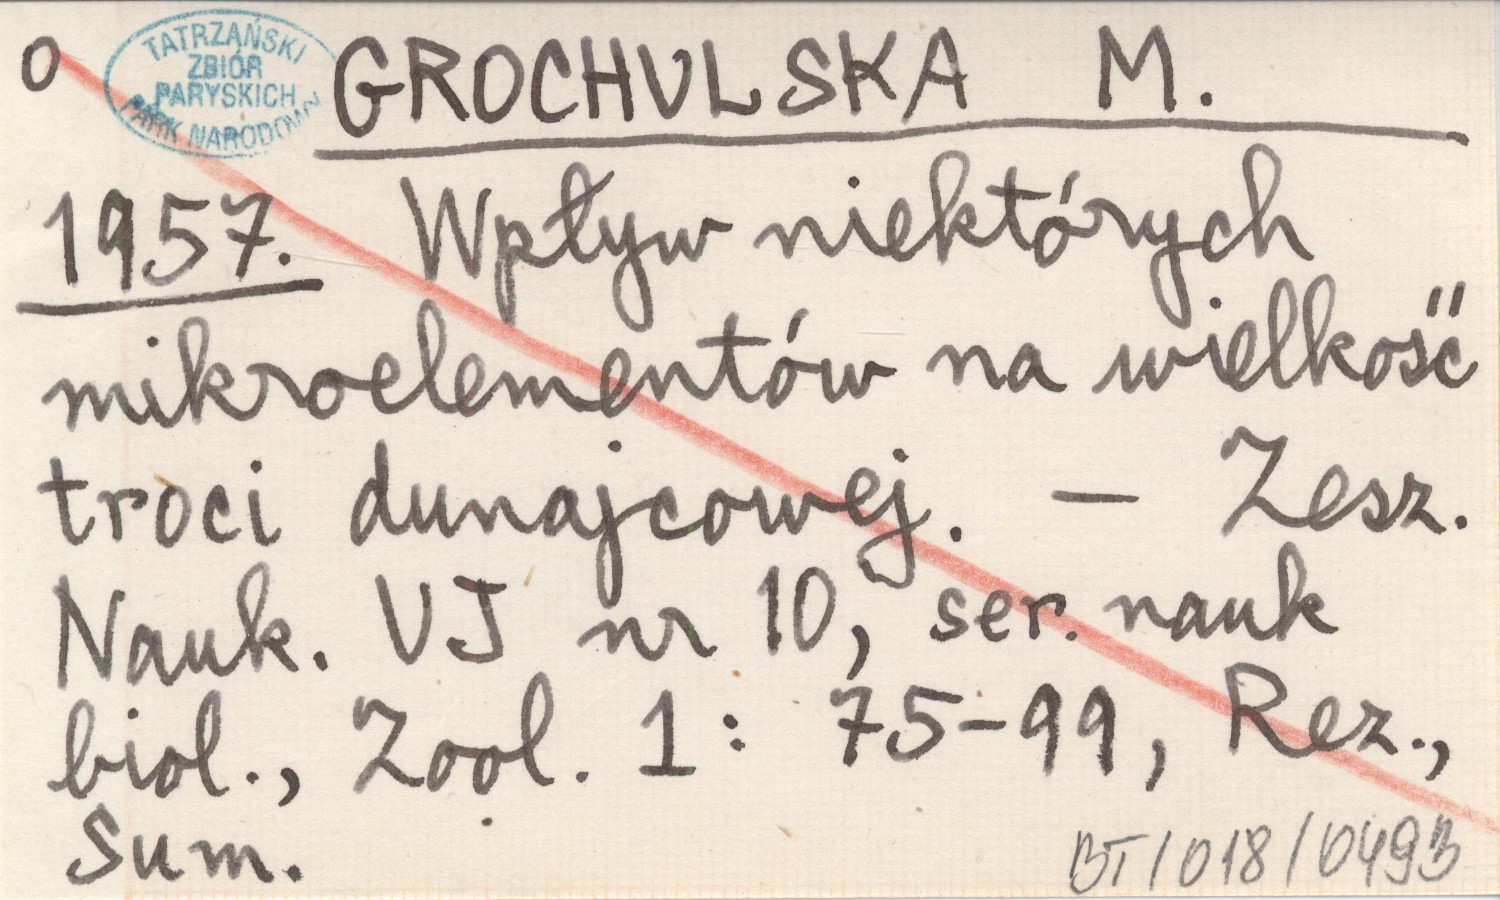 O
TATRZAŃSKI
ZBIÓR
PARYSKICH
PARK NARODOWY
GROCHULSKA M.
1957. Wpływ niektórych
mikroelementów na wielkość
troci dunajcowej. — Zesz.
Nauk. UJ nr 10, ser. nauk
biol., Zool. 1: 75-99, Rez.,
Sum.
BT/018/0493